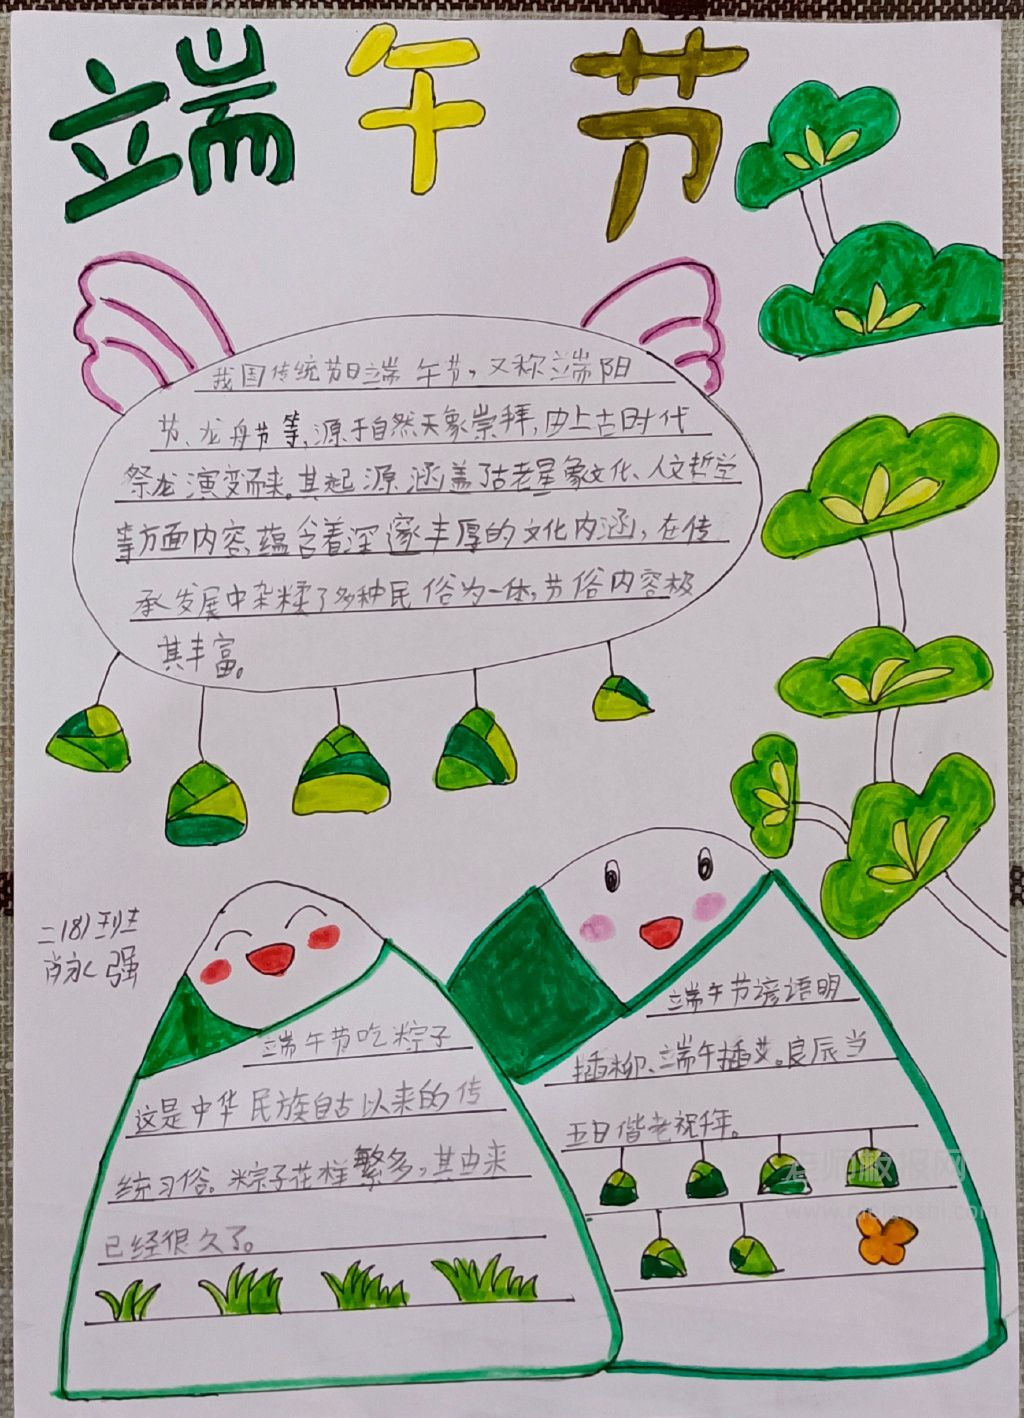 端午节
我国传统节日端午节,又称端阳
节、龙舟节等,源于自然天象崇拜,由上古时代
祭龙演变而来。其起源涵盖了古老星象文化、人文哲学
等方面内容,蕴含着深邃丰厚的文化内涵,在传
承发展中杂糅了多种民俗为一体,节俗内容极
其丰富。
二(8)班
肖永强
端午节吃粽子
这是中华民族自古以来的传
统习俗。粽子花样繁多,其由来
已经很久了。
端午节谚语明
插柳、端午插艾。良辰当
五日偕老祝千年。
老师板报网